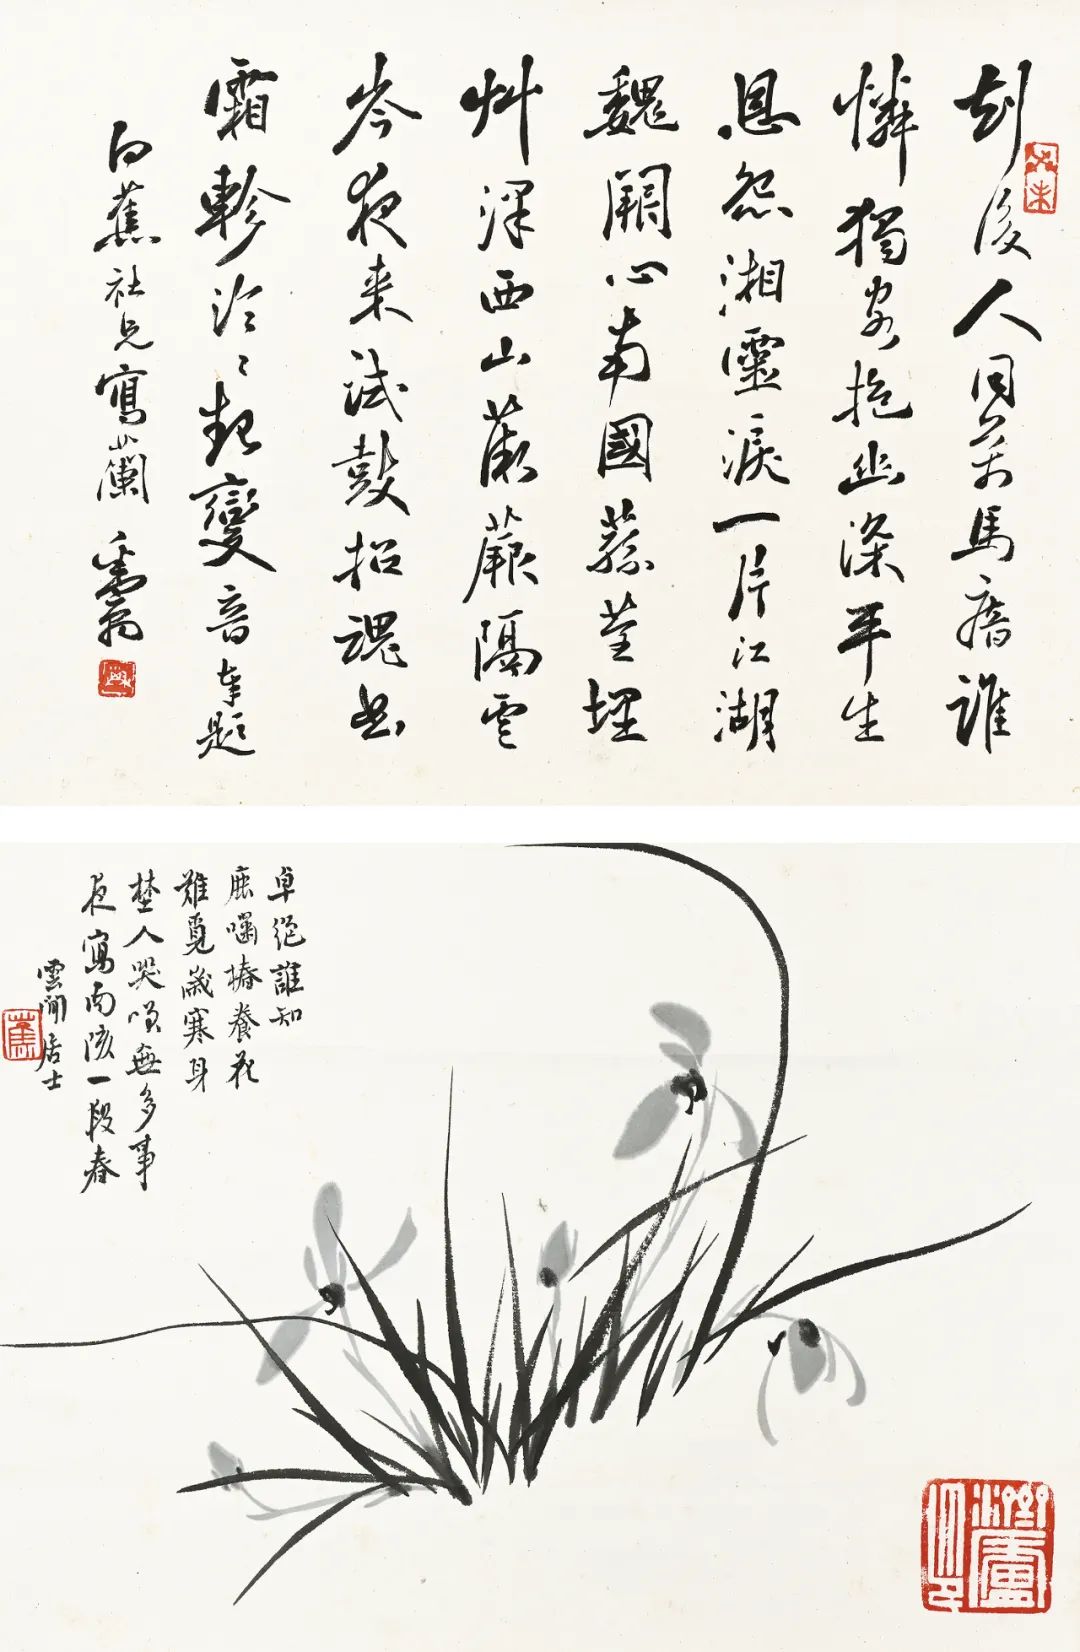 劫後人同萬馬瘖誰
憐獨客抱幽深平生
恩怨湘靈淚一片江湖
魏闕心南國蓀荃埋
艸澤西山薇蕨隔雲
岑夜來試鼓招魂曲
霜軫泠〻起變音奉題
白蕉社兄寫蘭
卓絕誰知
養花
難覓歲寒身
人哭無多事
夜寫南陔一段春
雲間居士
蕉